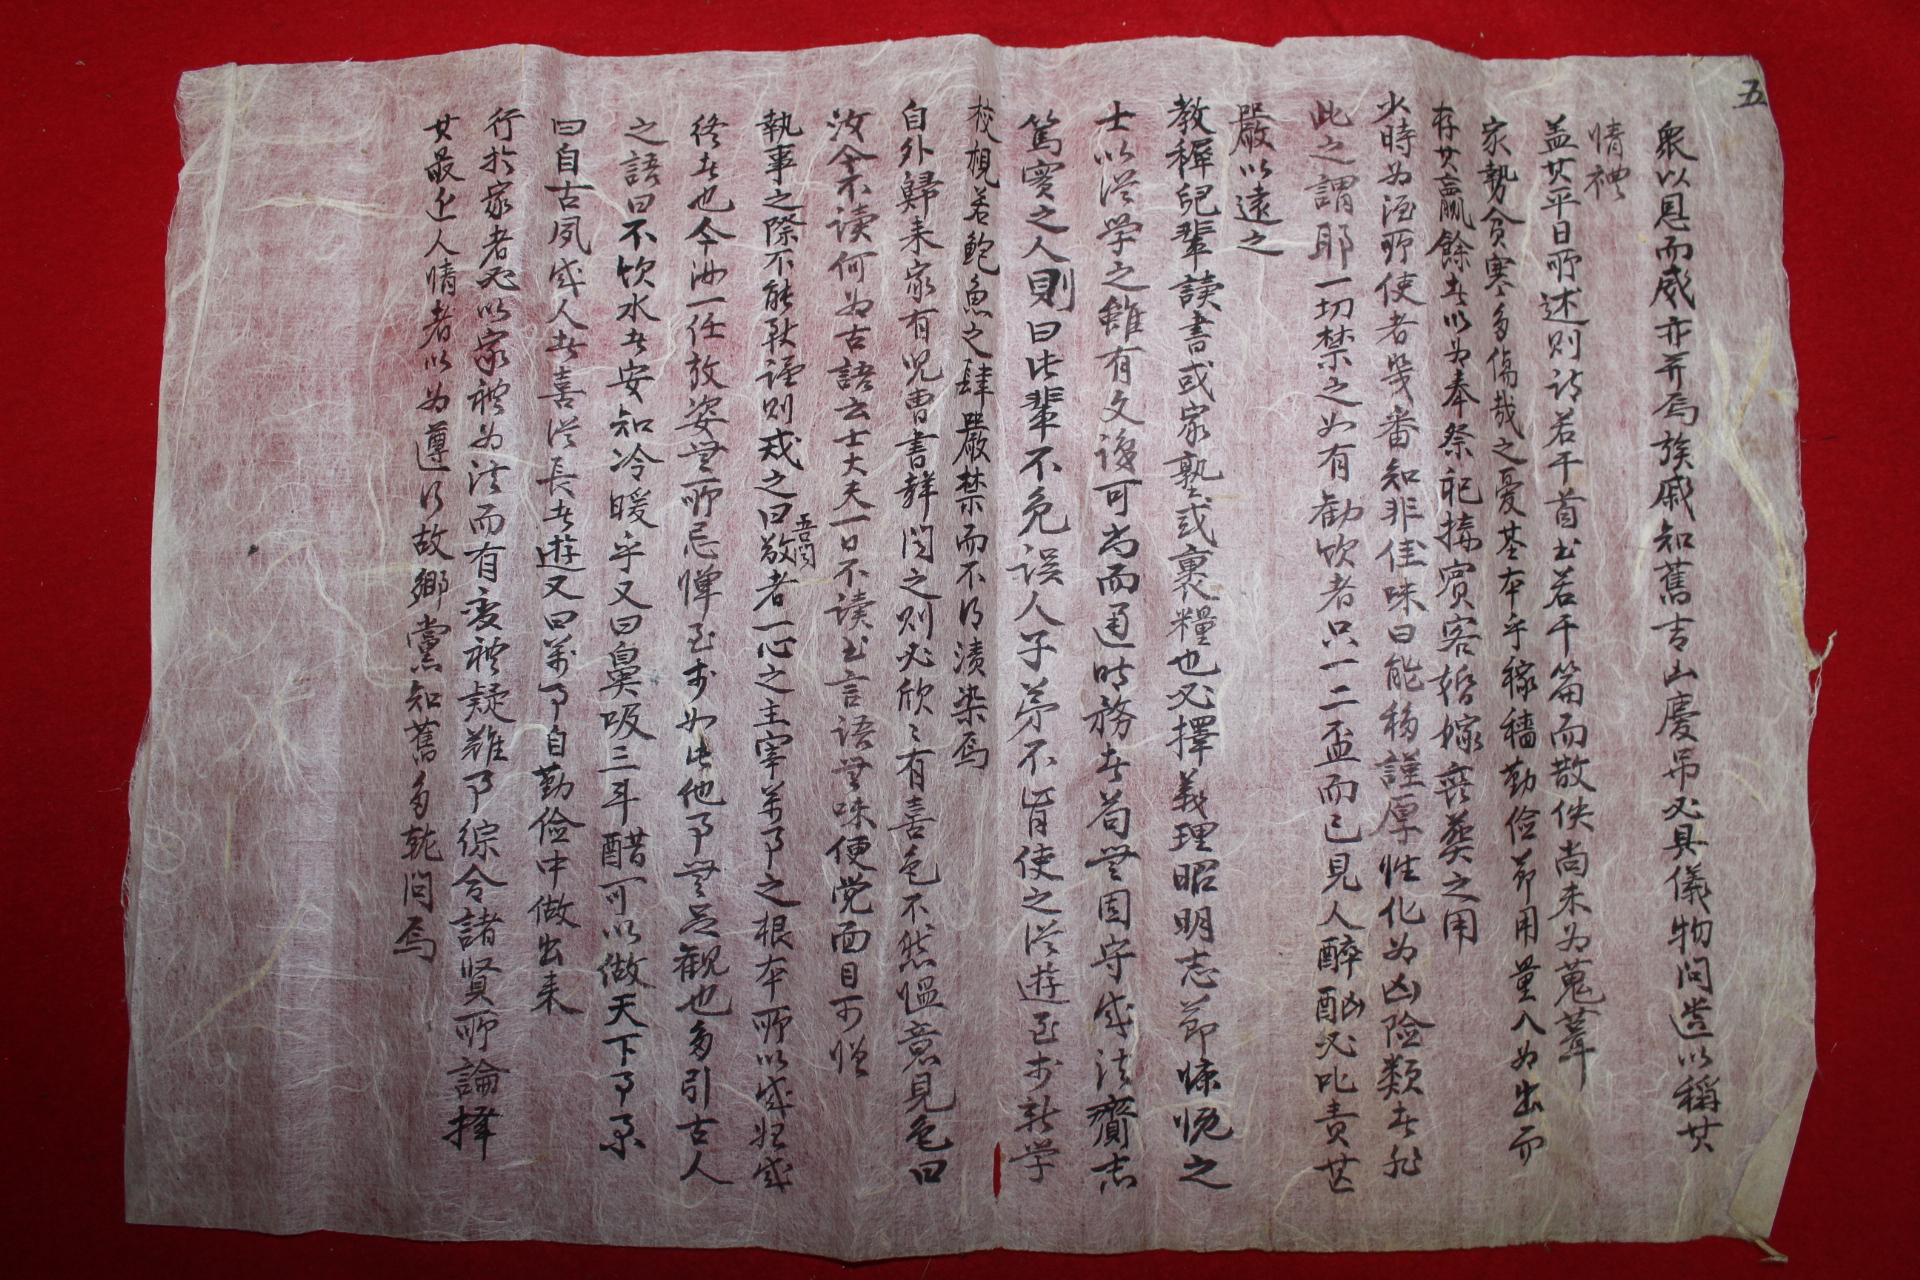 五
衆以恩而威亦並焉族戚知舊吉凶慶吊必具儀物問遺以稱其
情禮
盖其平日所述則詩若干首書若干篇而散佚尚未為蒐葺
家勢貧寒多傷哉之憂基本乎稼穡勤儉節用量入為出而
存其贏餘者以為奉祭祀接賓客婚嫁喪葬之用
少時為酒所使者幾番知非佳味曰能移謹厚性化為凶險類者非
此之謂耶一切禁之如有勸飮者只一二盃而已見人醉酗必叱責甚
嚴以遠之
教穉兒輩讀書或家塾或裹糧也必擇義理昭明志節慷慨之
士以從学之雖有文識可尚而通時務者苟無固守成法齎志
篤實之人則曰此輩不免誤人子弟不肯使之從遊至於新学
校視若鮑魚之肆嚴禁而不得漬染焉
自外歸来家有兒曹書聲問之則必欣〻有喜色不然慍意見色曰
汝今不讀何為古語云士大夫一日不讀書言語無味便覚面目可憎
執事之際不能敬謹則戒之曰吾聞敬者一心之主宰萬事之根本所以成始成
終者也今汝一任放恣無所忌憚至於如此他事無足観也多引古人
之語曰不飮水者安知冷暖乎又曰鼻吸三斗醋可以做天下事系
曰自古夙成人者喜從長者遊又曰萬事自勤儉中做出来
行於家者必以家禮為法而有变禮疑難事綜合諸贤所論擇
其最近人情者以為遵行故鄉黨知舊多就問焉